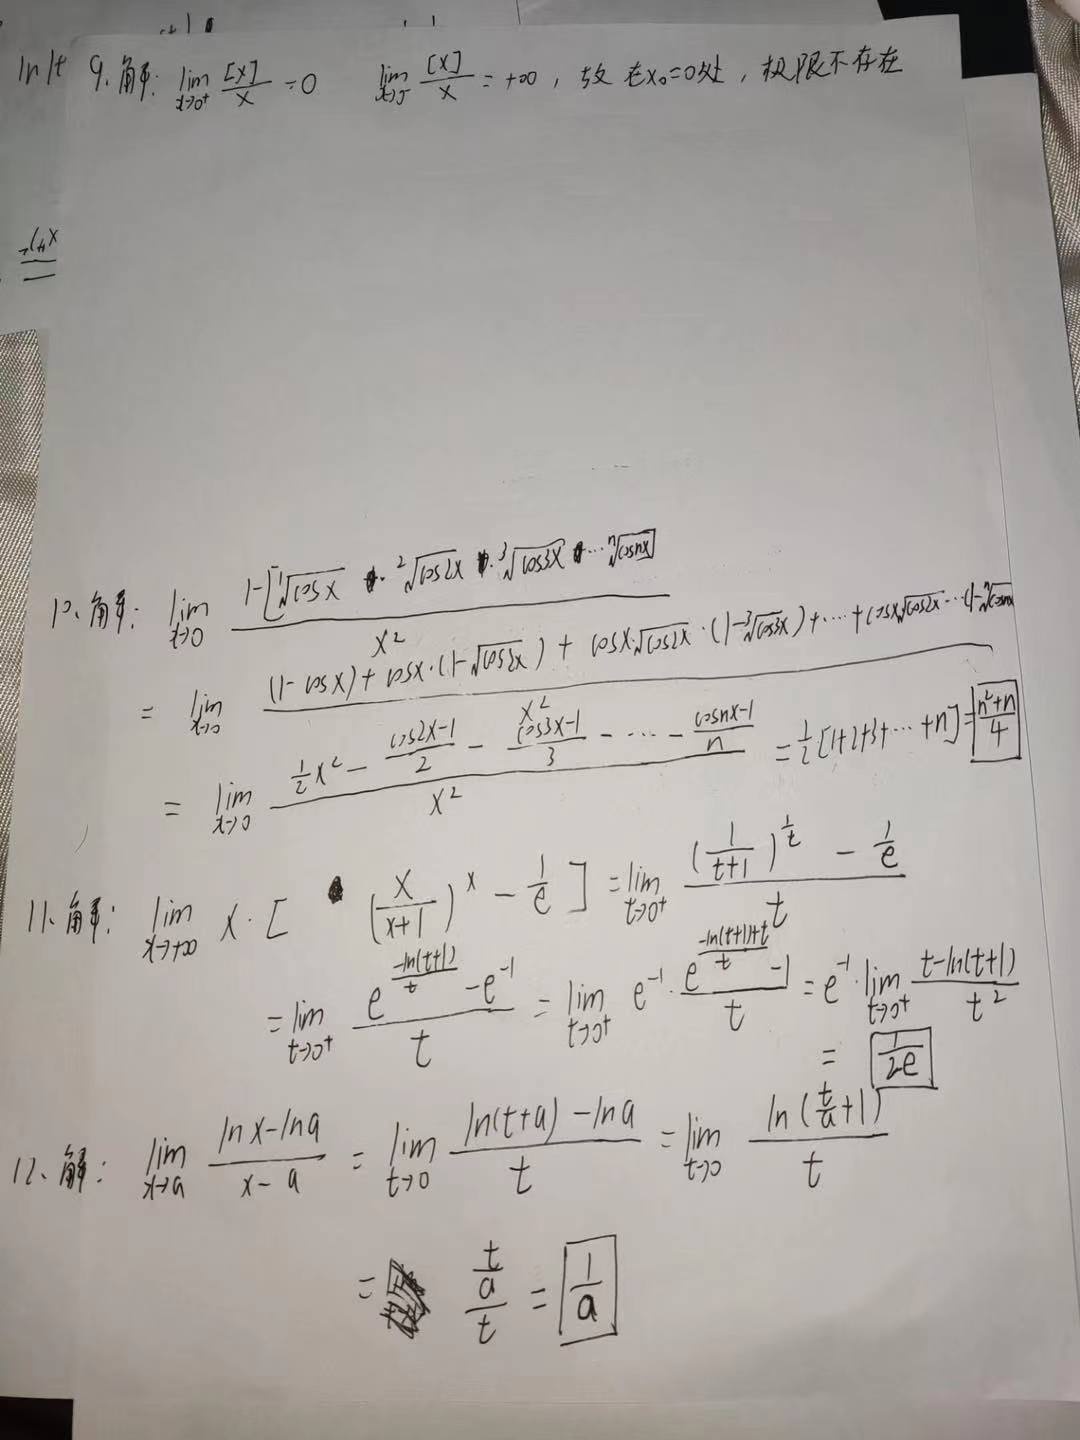 ln|t
9. 解: lim_{x→0⁺} [x]/x = 0   lim_{x→0⁻} [x]/x = +∞, 故 在x₀=0处, 极限不存在
10. 解: lim_{x→0} (1-[¹√cosx · ²√cos2x · ³√cos3x · … ⁿ√cosnx])/x²
= lim_{x→0} ((1-cosx)+cosx·(1-√cos2x)+cosx·√cos2x·(1-³√cos3x)+…+cosx√cos2x…(1-ⁿ√cosnx))/x²
= lim_{x→0} (½x² - (cos2x-1)/2 - (cos3x-1)/3 - … - (cosnx-1)/n)/x² = ½[1+2+3+…+n] = (n²+n)/4
11. 解: lim_{x→+∞} x·[(x/(x+1))^x - 1/e] = lim_{t→0⁺} ((1/(t+1))^{1/t} - 1/e)/t
= lim_{t→0⁺} (e^{-ln(t+1)/t} - e⁻¹)/t = lim_{t→0⁺} e⁻¹·(e^{(-ln(t+1)+t)/t} - 1)/t = e⁻¹·lim_{t→0⁺} (t-ln(t+1))/t²
= 1/2e
12. 解: lim_{x→a} (lnx-lna)/(x-a) = lim_{t→0} (ln(t+a)-lna)/t = lim_{t→0} ln(t/a+1)/t
= (t/a)/t = 1/a